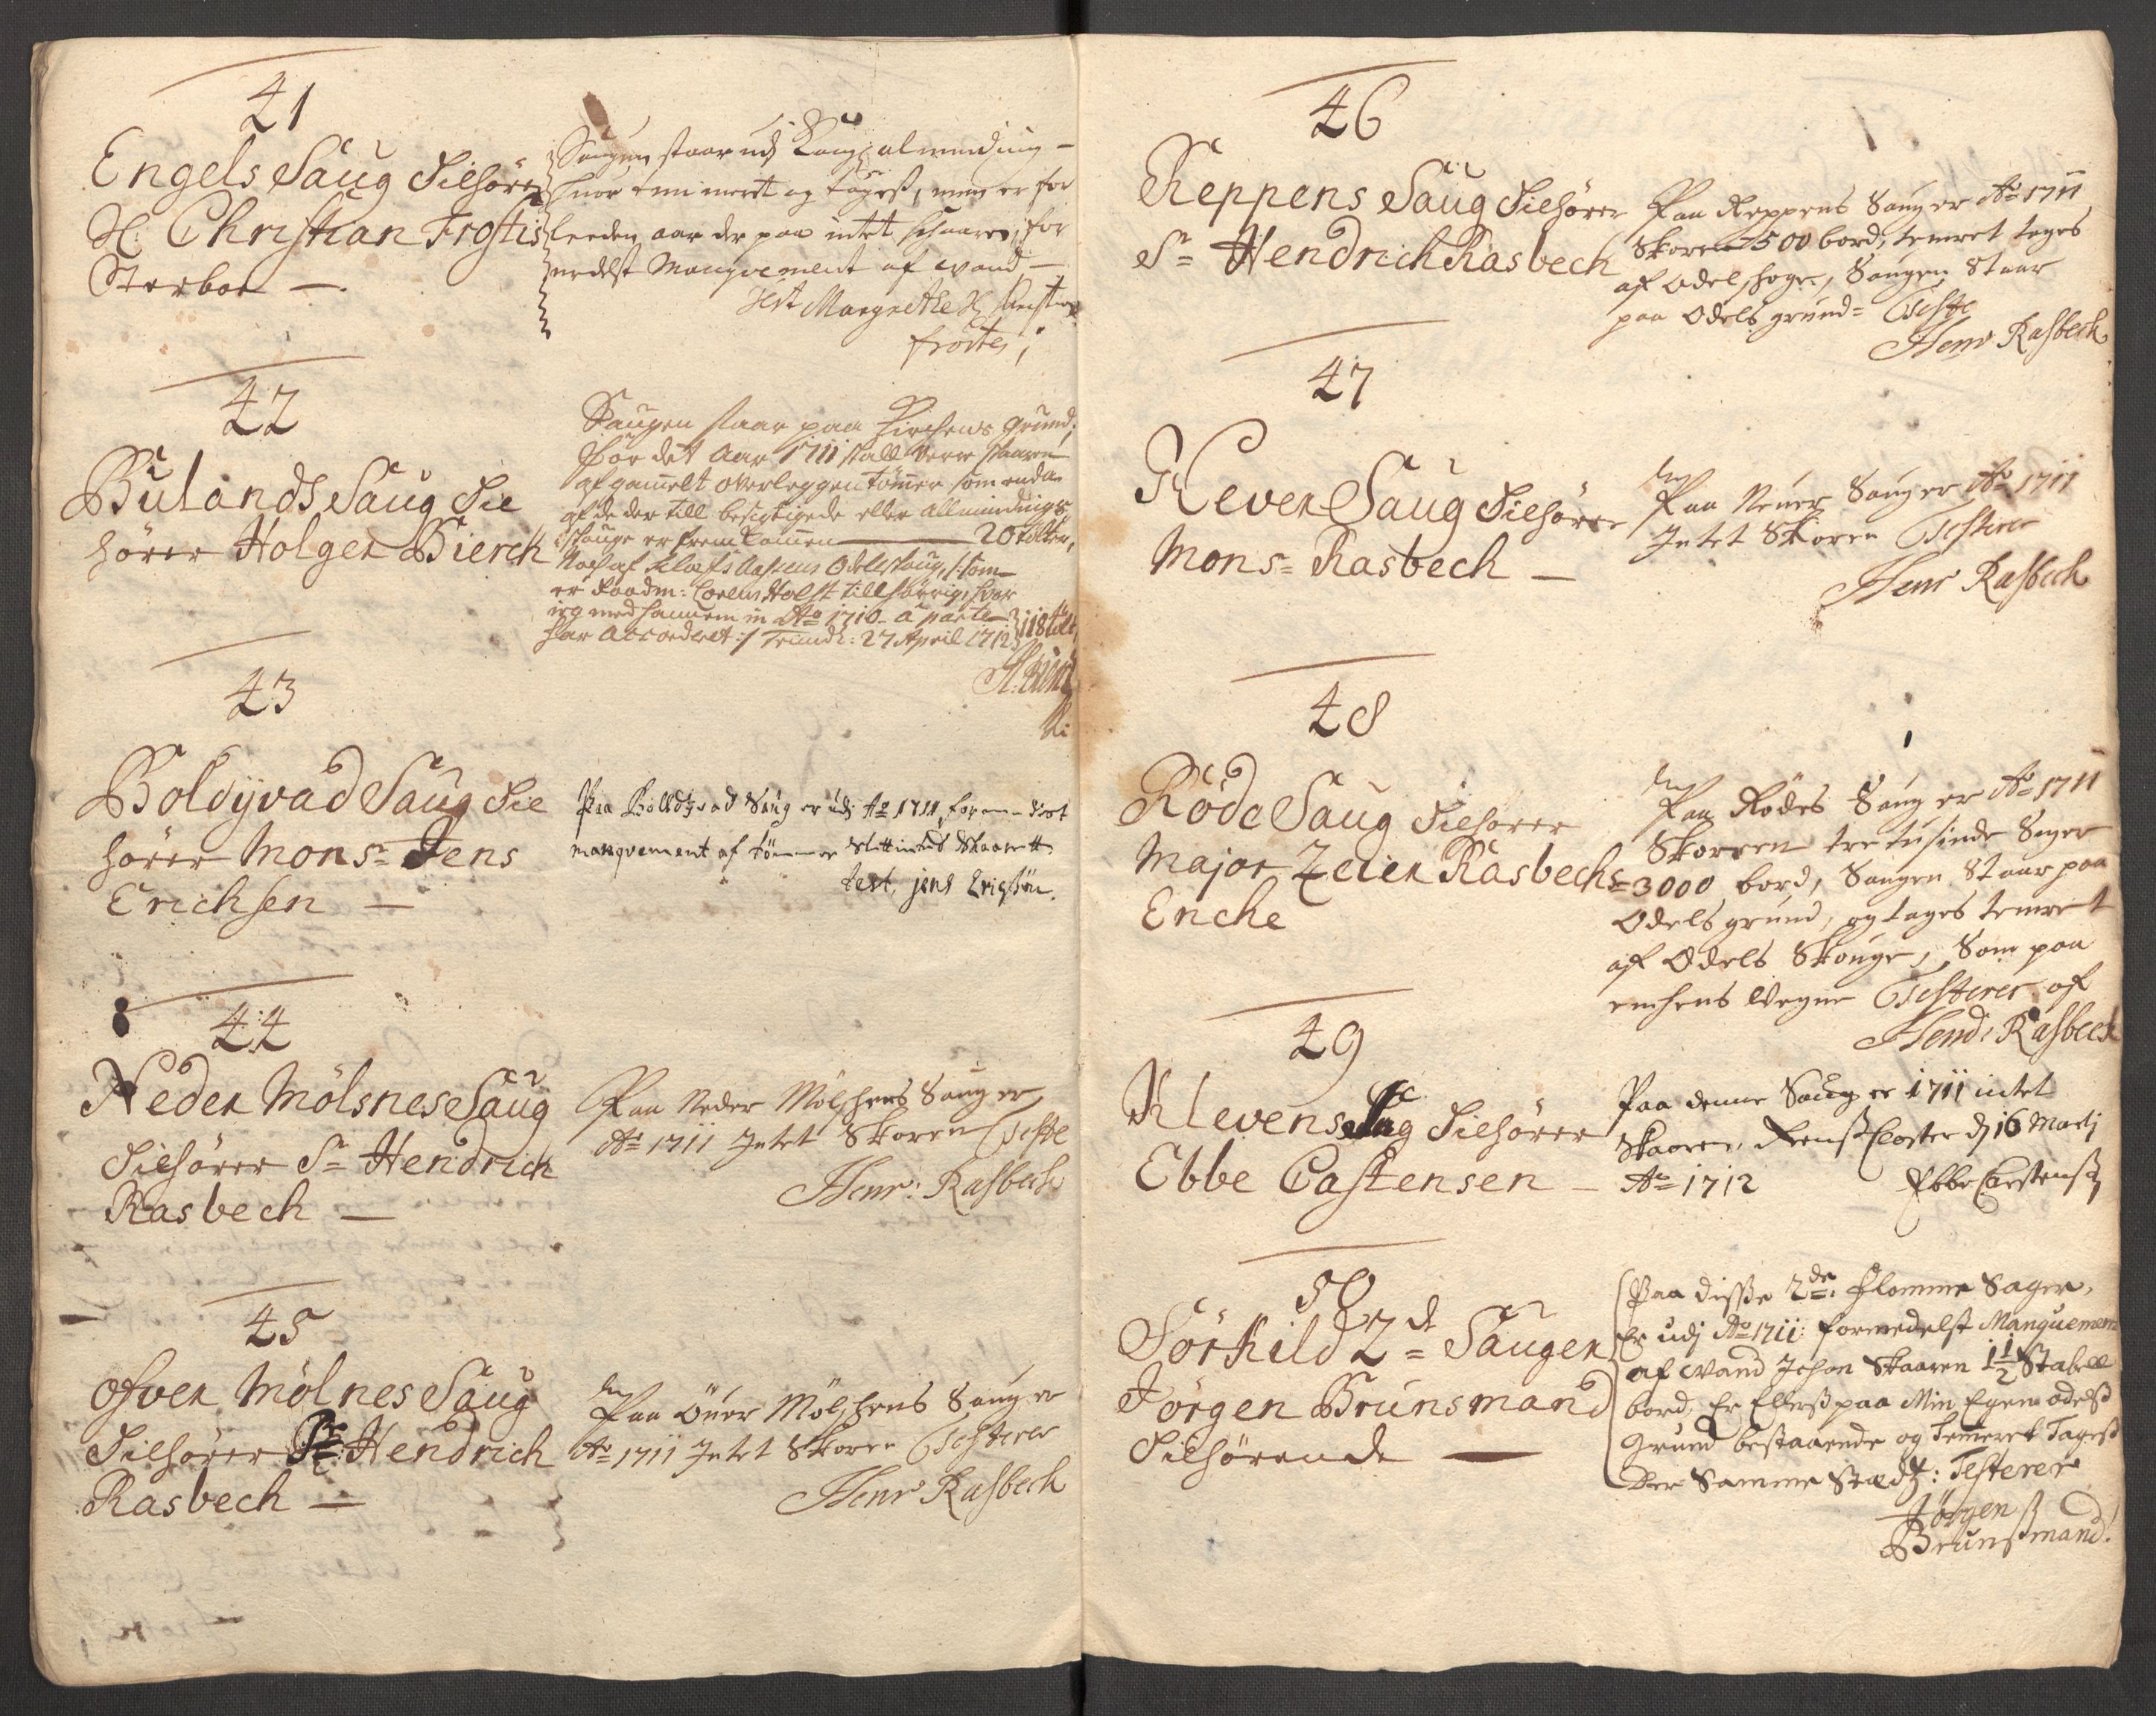 41
Engels Saug Tilhører
H. Christian Frostis
Sterboe —
Saugen staar udj Kongs alminding —
huor temmeret og tages, men er for
leeden aar der paa intet schaaren, for
medelst Manqvement af vand —
Test Margrethe Sl
frostes
42
Bulands Saug Til
hører Holger Bierch
Saugen staar paa Kirchens grund;
for det Aar 1711 skall være skaaren
af gamelt overleggen tømmer som enda
af de der till besigtigede eller allmindings
skouge er fremkomen — 20 tolter,
Noch af Aasens Odelskoug, /: som
er Raadm: Lorens Holst tillhørrig, hvor
ieg med hannem in Ao 1710 - a parte 118 tolt
har Accorderet :/ Trundh: 27 April 1712
H: Bierch
43
Boldyvad Saug Til
hører Mons= Jens
Erichsen —
Paa Bolldyvad Saug er udj Ao 1711, formedelst
manqvement af tømmer slett intet Skaarett
test, jens Erichsøn.
44
Neder Mølsnes Saug
Tilhører Sr= Hendrich
Rasbech —
Paa Neder Mølschens Saug er
Ao 1711 Intet Skoren Teste
Henr: Rasbech
45
Ofver Mølnes Saug
Tilhører Sr= Hendrich
Rasbech —
Paa Över Mölshens Saug er
Ao 1711 Intet Skoren Testerer
Henr Rasbech
46
Reppens Saug Tilhører
Sr= Hendrich Rasbech
Paa Reppens Saug er Ao 1711
Skoren 7500 bord, temret tages
af odelshoge, Saugen Staar
paa Odels grund= Teste
Henr Rasbech
47
Never Saug Tilhører
Mons= Rasbech —
Paa Never Saug er Ao 1711
Intet Skoren Testerer
Henr Rasbech
48
Röde Saug Tilhører
Major Zeier Rasbechs
Enche
Paa Rödes Saug er Ao 1711
Skorren tretusinde Siger
=3000 bord, Saugen Staar paa
Odels grund, og tages temret
af Odels Skouge, Som paa
enchens Vegne Testerer af
Hend: Rasbech
49
Klevens Saug Tilhører
Ebbe Castensen —
Paa denne Saug er 1711 intet
Skaaren, Renscloster d 16 Martj
Ao 1712 Ebbe Carstensen
50
Törkild 2de Sauger
Jörgen Brunsmand
Tilhørende —
Paa disse 2de: flomme Sager,
Er udj Ao 1711: formedelst Manquement
af Vand Ichon Skaaren 1 1/2 Stabell
bord, Er Ellerss paa Min Egen odelss
Grund bestaaende og temeret Tagess
der Samme Stedtz: Testerer
Jörgen
Brunssmand.